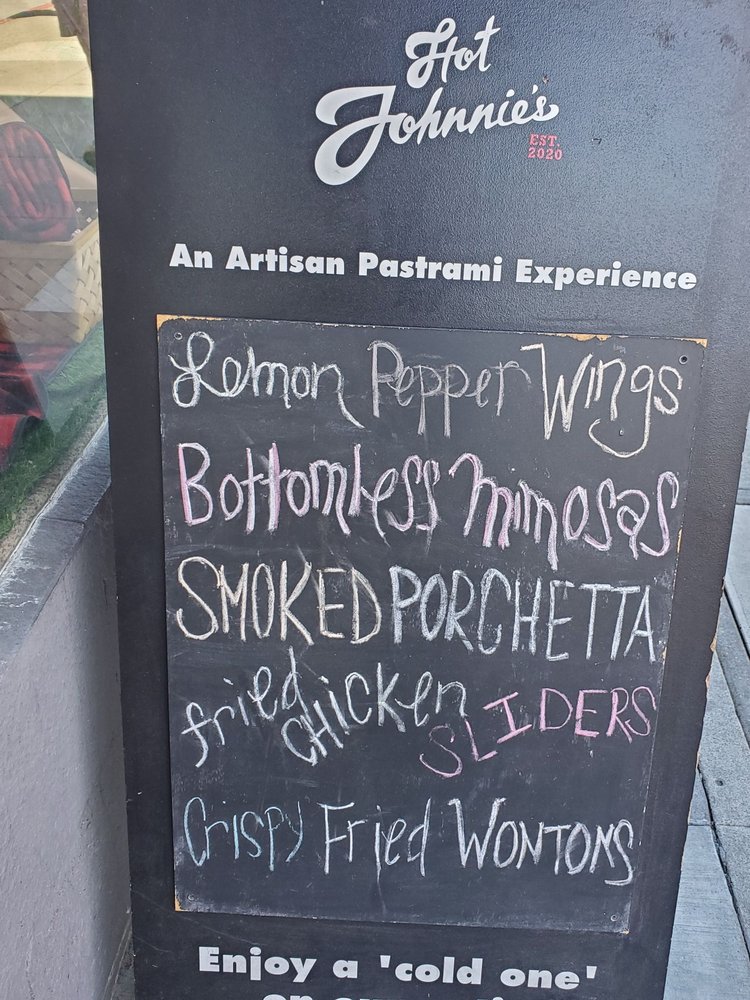 Hot
Johnnie's
EST.
2020
An Artisan Pastrami Experience
Lemon Pepper Wings
Bottomless Mimosas
SMOKED PORCHETTA
fried CHICKEN SLIDERS
Crispy Fried WONTONS
Enjoy a 'cold one'